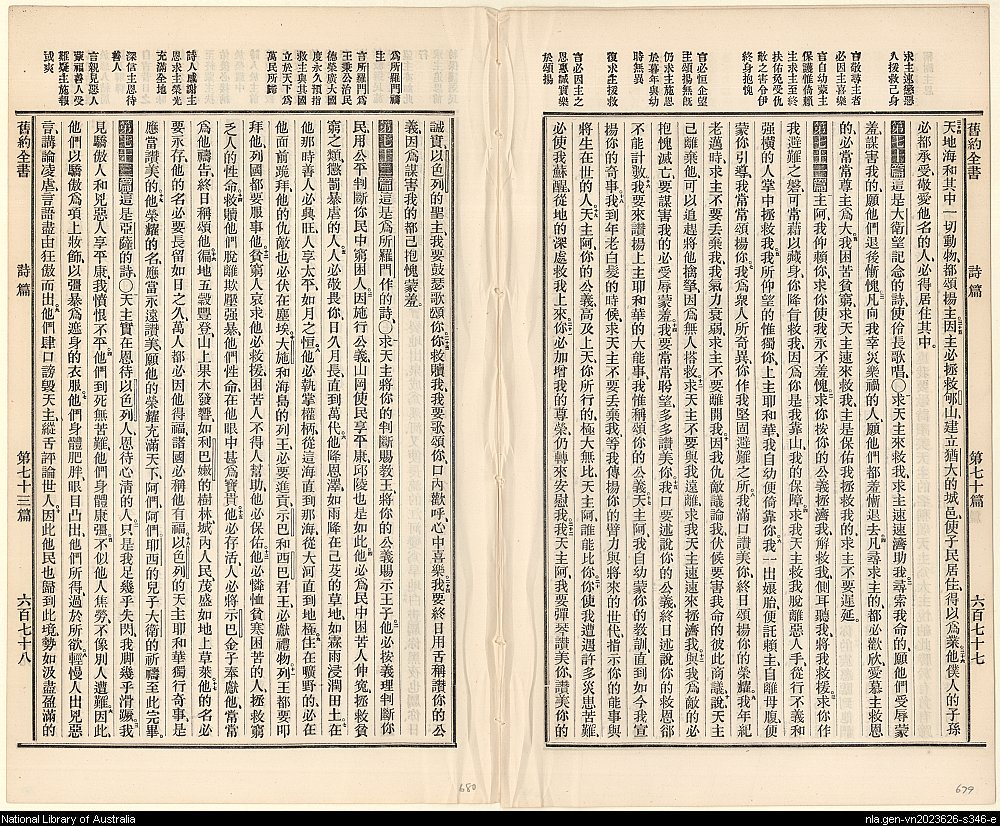 舊約全書
詩篇
第七十篇
六百七十七
求主速懲惡
人援救己身
言敬尊主者
必因主喜樂
言自幼蒙主
保護惟倚賴
主求主至終
扶佑免受仇
敵之害今伊
終身抱愧
言必恒企望
主頌揚無旣
仍求主施恩
於暮年與幼
時無異
復求主援救
言必因主之
恩惠誠實樂
於頌揚
天地海和其中一切動物都頌揚主因主必拯救郇山建立猶大的城邑使子民居住得以爲業他僕人的子孫
必都承受敬愛他名的人必得居住其中
第七十篇這是大衛望記念的詩使伶長歌唱〇求天主來救我求主速速濟助我尋索我命的願他們受辱蒙
羞謀害我的願他們退後慚愧凡向我幸災樂禍的人願他們都羞慚退去凡尋求主的都必歡欣愛慕主救恩
的必常常尊主爲大我困苦貧窮求天主速來救我主是保佑我拯救我的求主不要遲延
第七十一篇主阿我仰賴你求你使我永不羞愧求你按你的公義拯濟我解救我側耳聽我將我救援求你作
我避難之磐可常藉以藏身你降旨救我因爲你是我靠山我的保障求我天主救我脫離惡人手從行不義和
强橫的人掌中拯救我我所仰望的惟獨你上主耶和華我自幼便倚靠你我一出娘胎便託賴主自離母腹便
蒙你引導我常常頌揚你我爲衆人所奇異你作我堅固避難之所我滿口讚美你終日頌揚你的榮耀我年紀
老邁時求主不要丟棄我我氣力衰弱求主不要離開我因我仇敵議論我伏候要害我命的彼此商議說天主
己離棄他可以追趕將他擒拏因爲無人搭救求天主不要與我遠離求我天主速速來拯濟我與我爲敵的必
抱愧滅亡要謀害我的必受辱蒙羞我要常常盼望多多讚美你我口要述說你的公義終日述說你的救恩卻
不能計數我要來讚揚上主耶和華的大能事我惟稱頌你的公義天主阿我自幼蒙你的教訓直到如今我宣
揚你的奇事我到年老白髮的時候求天主不要丟棄我等我傳揚你的臂力與將來的世代指示你的能事與
將生在世的人天主阿你的公義高及上天你所行的極大無比天主阿誰能比你你使我遭遇許多災患苦難
必使我蘇醒從地的深處救我上來你必加增我的尊榮仍轉來安慰我我天主阿我要彈琴讚美你讚美你的
爲所羅門禱
生
言所羅門爲
王秉公治民
德榮廣大國
度永久預指
救主與其國
立於天下爲
萬民所歸
詩人感謝主
恩求主榮光
充滿全地
深信主恩待
善人
言親見惡人
蒙福善人受
難疑主施報
或爽
誠實以色列的聖主我要鼓瑟歌頌你你救贖我我要歌頌你口內歡呼心中喜樂我要終日用舌稱讚你的公
義因爲謀害我的都己抱愧蒙羞
第七十二篇這是爲所羅門作的詩〇求天主將你的判斷賜教王將你的公義賜示王子他必按義理判斷你
民用公平判斷你民中窮困人因施行公義山岡使民享平康邱陵也是如此他必爲民中困苦人伸寃拯救貧
窮之類懲罰暴虐的人人必敬畏你日久月長直到萬代他降恩澤如雨降在己芟的草地如霖雨浸潤田土在
他那時善人必興旺人享太平如月之恒他必執掌權柄從這海直到那海從大河直到地極住在曠野的必在
他面前跪拜他的仇敵也必伏在塵埃大施和海島的列王必要進貢示巴和西巴君王必獻禮物列王都要叩
拜他列國都要服事他貧窮人哀求他必救援困苦人不得人幫助他必保佑他必憐恤貧寒困苦的人拯救窮
乏人的性命救贖他們脫離欺壓强暴他們性命在他眼中甚爲寶貴他必存活人必將示巴金子奉獻他常常
爲他禱告終日稱頌他徧地五穀豐登山上果木發響如利巴嫩的樹林城內人民茂盛如地上草萊他的名必
要永存他的名必要長留如日之久萬人都必因他得福諸國必稱他有福以色列的天主耶和華獨行奇事是
應當讚美的他榮耀的名應當永遠讚美願他的榮耀充滿天下阿們阿們耶西的兒子大衛的祈禱至此完畢
第七十三篇這是亞薩的詩〇天主實在恩待以色列人恩待心清的人只是我足幾乎失閃我脚幾乎滑蹶我
見驕傲人和兇惡人享平康我憤恨不平他們到死無苦難他們身體康彊不似他人焦勞不像別人遭難因此
他們以驕傲爲項上妝飾以彊暴爲遮身的衣服他們身體肥胖眼目凸出他們所得過於所欲輕慢人出兇惡
言講論凌虐言語盡由狂傲而出他們肆口謗毀天主縱舌評論世人因此他民也歸到此境勢如汲盡盈滿的
舊約全書
詩篇
第七十三篇
六百七十八
680
679
National Library of Australia
nla.gen-vn2023626-s346-e